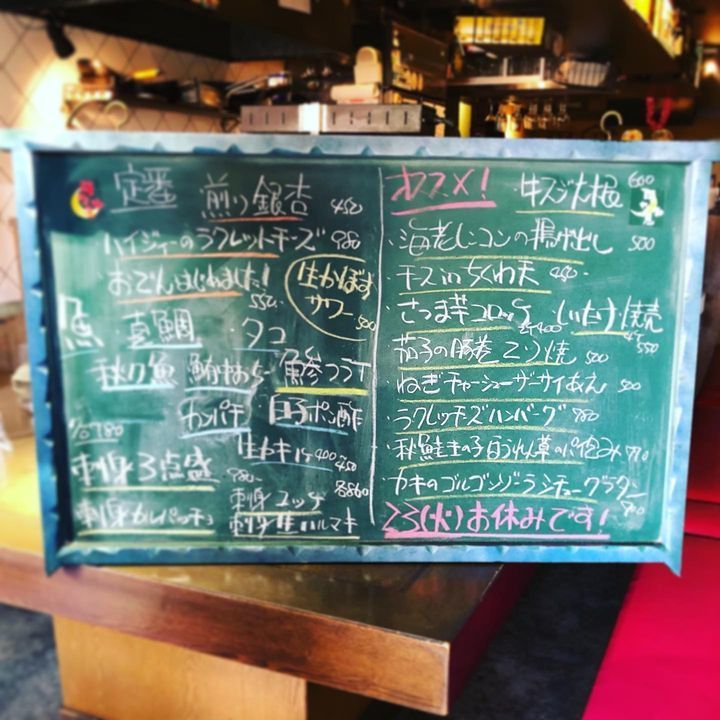 定番 煎り銀杏 450
ハイジャーのラクレットチーズ 980
おでんはじめました! 550
生かぼす
サワー 500
魚 真鯛 ・タコ
秋刀魚
カンパチ 白子ポン酢
生カキ 1ヶ 400〜450
刺身3点盛 980
刺身ユッケ 各860
刺身カルパッチョ 刺身生ハルマキ
オススメ! 牛スジ大根 600
・海老レンコンの揚げ出し 500
・チーズinちくわ天 450
・さつま芋コロッケ 400 しいたけ焼売 550
・茄子の豚巻てり焼 500
・ねぎチャーシューザーサイあえ 500
・ラクレッチーズハンバーグ 980
・秋鮭きの子ほうれん草のパイ包み 770
・カキのゴルゴンゾーラシチューグラタン 900
23(火)お休みです!